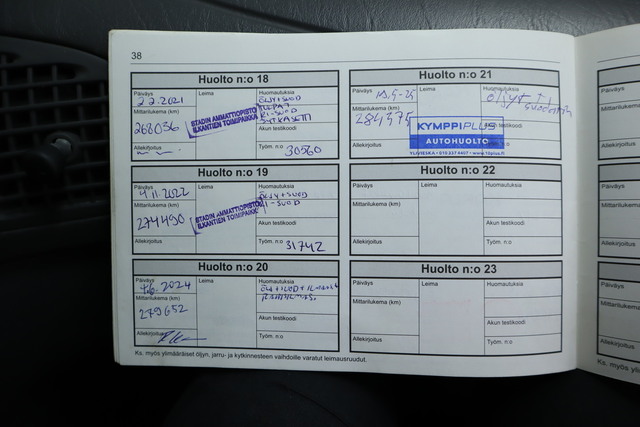 38
Huolto n:o 18
Päiväys
2.2.2021
Leima
Huomautuksia
ÖLJY+SUOD
Mittarilukema (km)
268036
STADIN AMMATTIOPISTO
ILKANTIEN TOIMIPAIKKA
Akun testikoodi
Allekirjoitus
Työm. n:o
30560
Huolto n:o 19
Päiväys
4.11.2022
Leima
Huomautuksia
ÖLJY+SUOD
Mittarilukema (km)
274490
STADIN AMMATTIOPISTO
ILKANTIEN TOIMIPAIKKA
Akun testikoodi
Allekirjoitus
Työm. n:o
31742
Huolto n:o 20
Päiväys
4.6.2024
Leima
Huomautuksia
Mittarilukema (km)
279652
Akun testikoodi
Allekirjoitus
Työm. n:o
Ks. myös ylimääräiset öljyn, jarru- ja kytkinnesteen vaihdoille varatut leimausruudut.
Huolto n:o 21
Päiväys
Leima
Huomautuksia
öljyt +
Mittarilukema (km)
284375
KYMPPIPLUS
AUTOHUOLTO
Akun testikoodi
Allekirjoitus
Työm. n:o
Huolto n:o 22
Päiväys
Leima
Huomautuksia
Mittarilukema (km)
Akun testikoodi
Allekirjoitus
Työm. n:o
Huolto n:o 23
Päiväys
Leima
Huomautuksia
Mittarilukema (km)
Akun testikoodi
Allekirjoitus
Työm. n:o
Päiväys
Mittarilukema
Allekirjoitus
Päiväys
Mittarilukema
Allekirjoitus
Päiväys
Mittarilukema
Allekirjoitus
Ks. myös